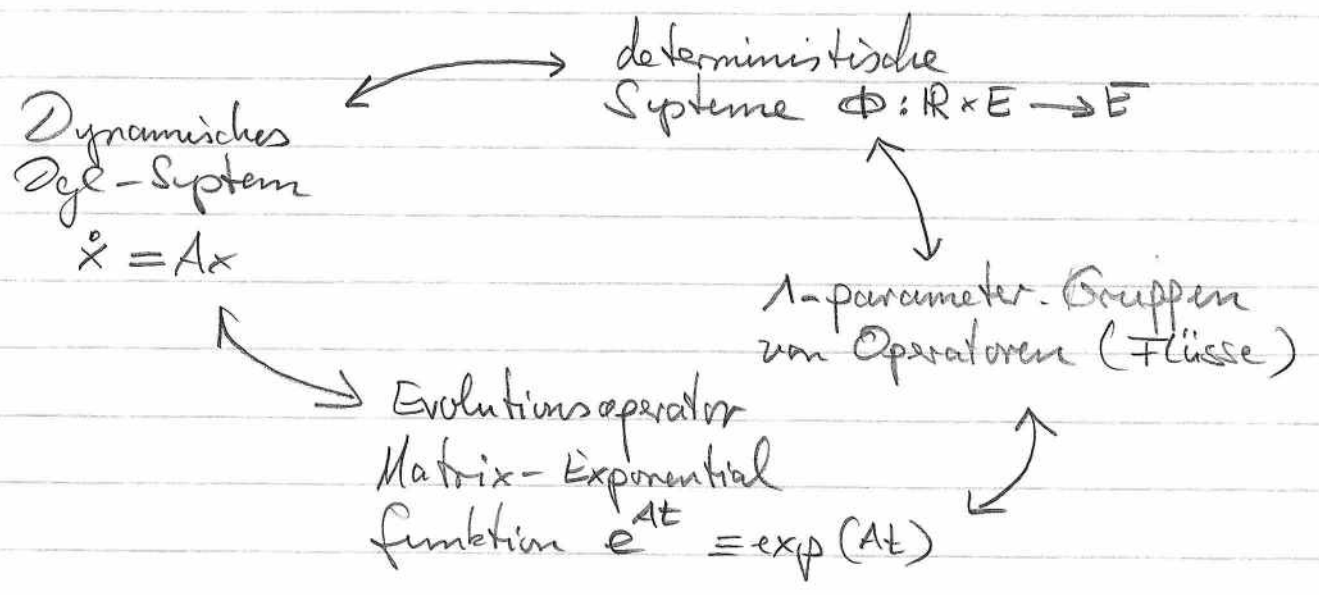 deterministische
Systeme Φ : ℝ × E → E
Dynamisches
Dgl-System
ẋ = Ax
1-parameter-Gruppen
von Operatoren (Flüsse)
Evolutionsoperator
Matrix-Exponential
funktion e^{At} ≡ exp(At)